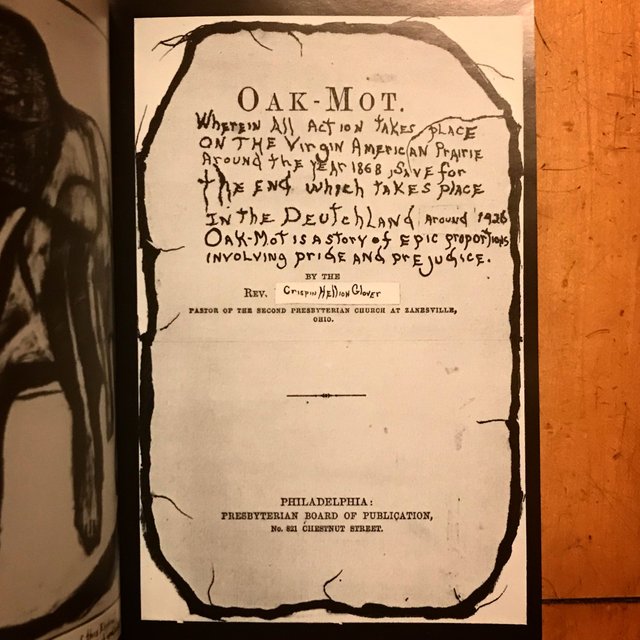 OAK-MOT.
WHEREIN All ACTION TAKES PLACE
ON THE VIRGIN AMERICAN PRAIRIE
AROUND the YEAR 1868, SAVE for
the END which TAKES PLACE
IN the DEUTCHLAND AROUND 1926
OAK-MOT IS A STORY of EPIC PROPORTIONS
INVOLVING PRIDE AND PREJUDICE.
BY THE
REV. CRISPIN HELLION GLOVER
PASTOR OF THE SECOND PRESBYTERIAN CHURCH AT ZANESVILLE,
OHIO.
PHILADELPHIA:
PRESBYTERIAN BOARD OF PUBLICATION,
No. 821 CHESTNUT STREET.